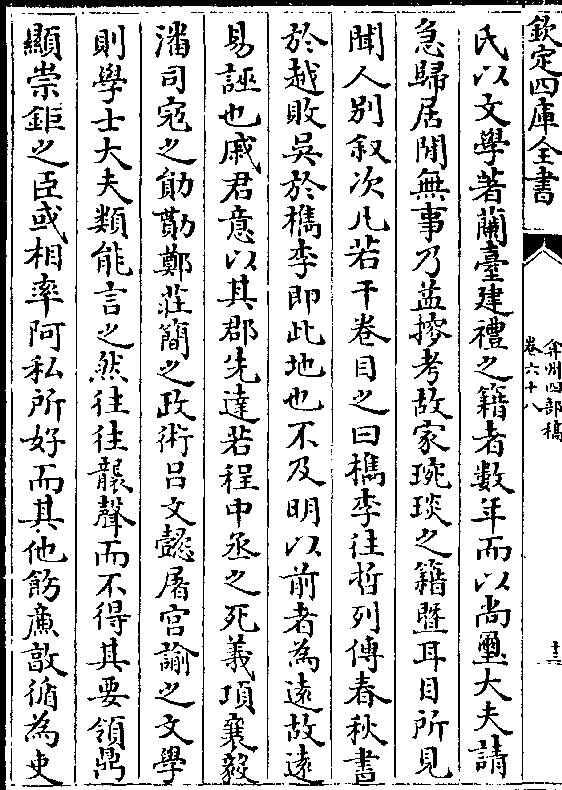 欽定四庫全書
弇州四部稿
卷六十八
十二
氏以文學著蘭臺建禮之籍者數年而以尚璽大夫請
急歸居閒無事乃益搜考故家琬琰之籍暨耳目所見
聞人別叙次凡若干卷目之曰檇李往哲列傳春秋書
於越敗吳於檇李即此地也不及明以前者為遠故遠
易誣也戚君意以其郡先達若程中丞之死義項襄毅
潘司宼之勛勩鄭莊簡之政術吕文懿屠宫諭之文學
則學士大夫類能言之然往往襲聲而不得其要領鼎
顯崇鉅之臣或相率阿私所好而其他飭廉敦循為吏